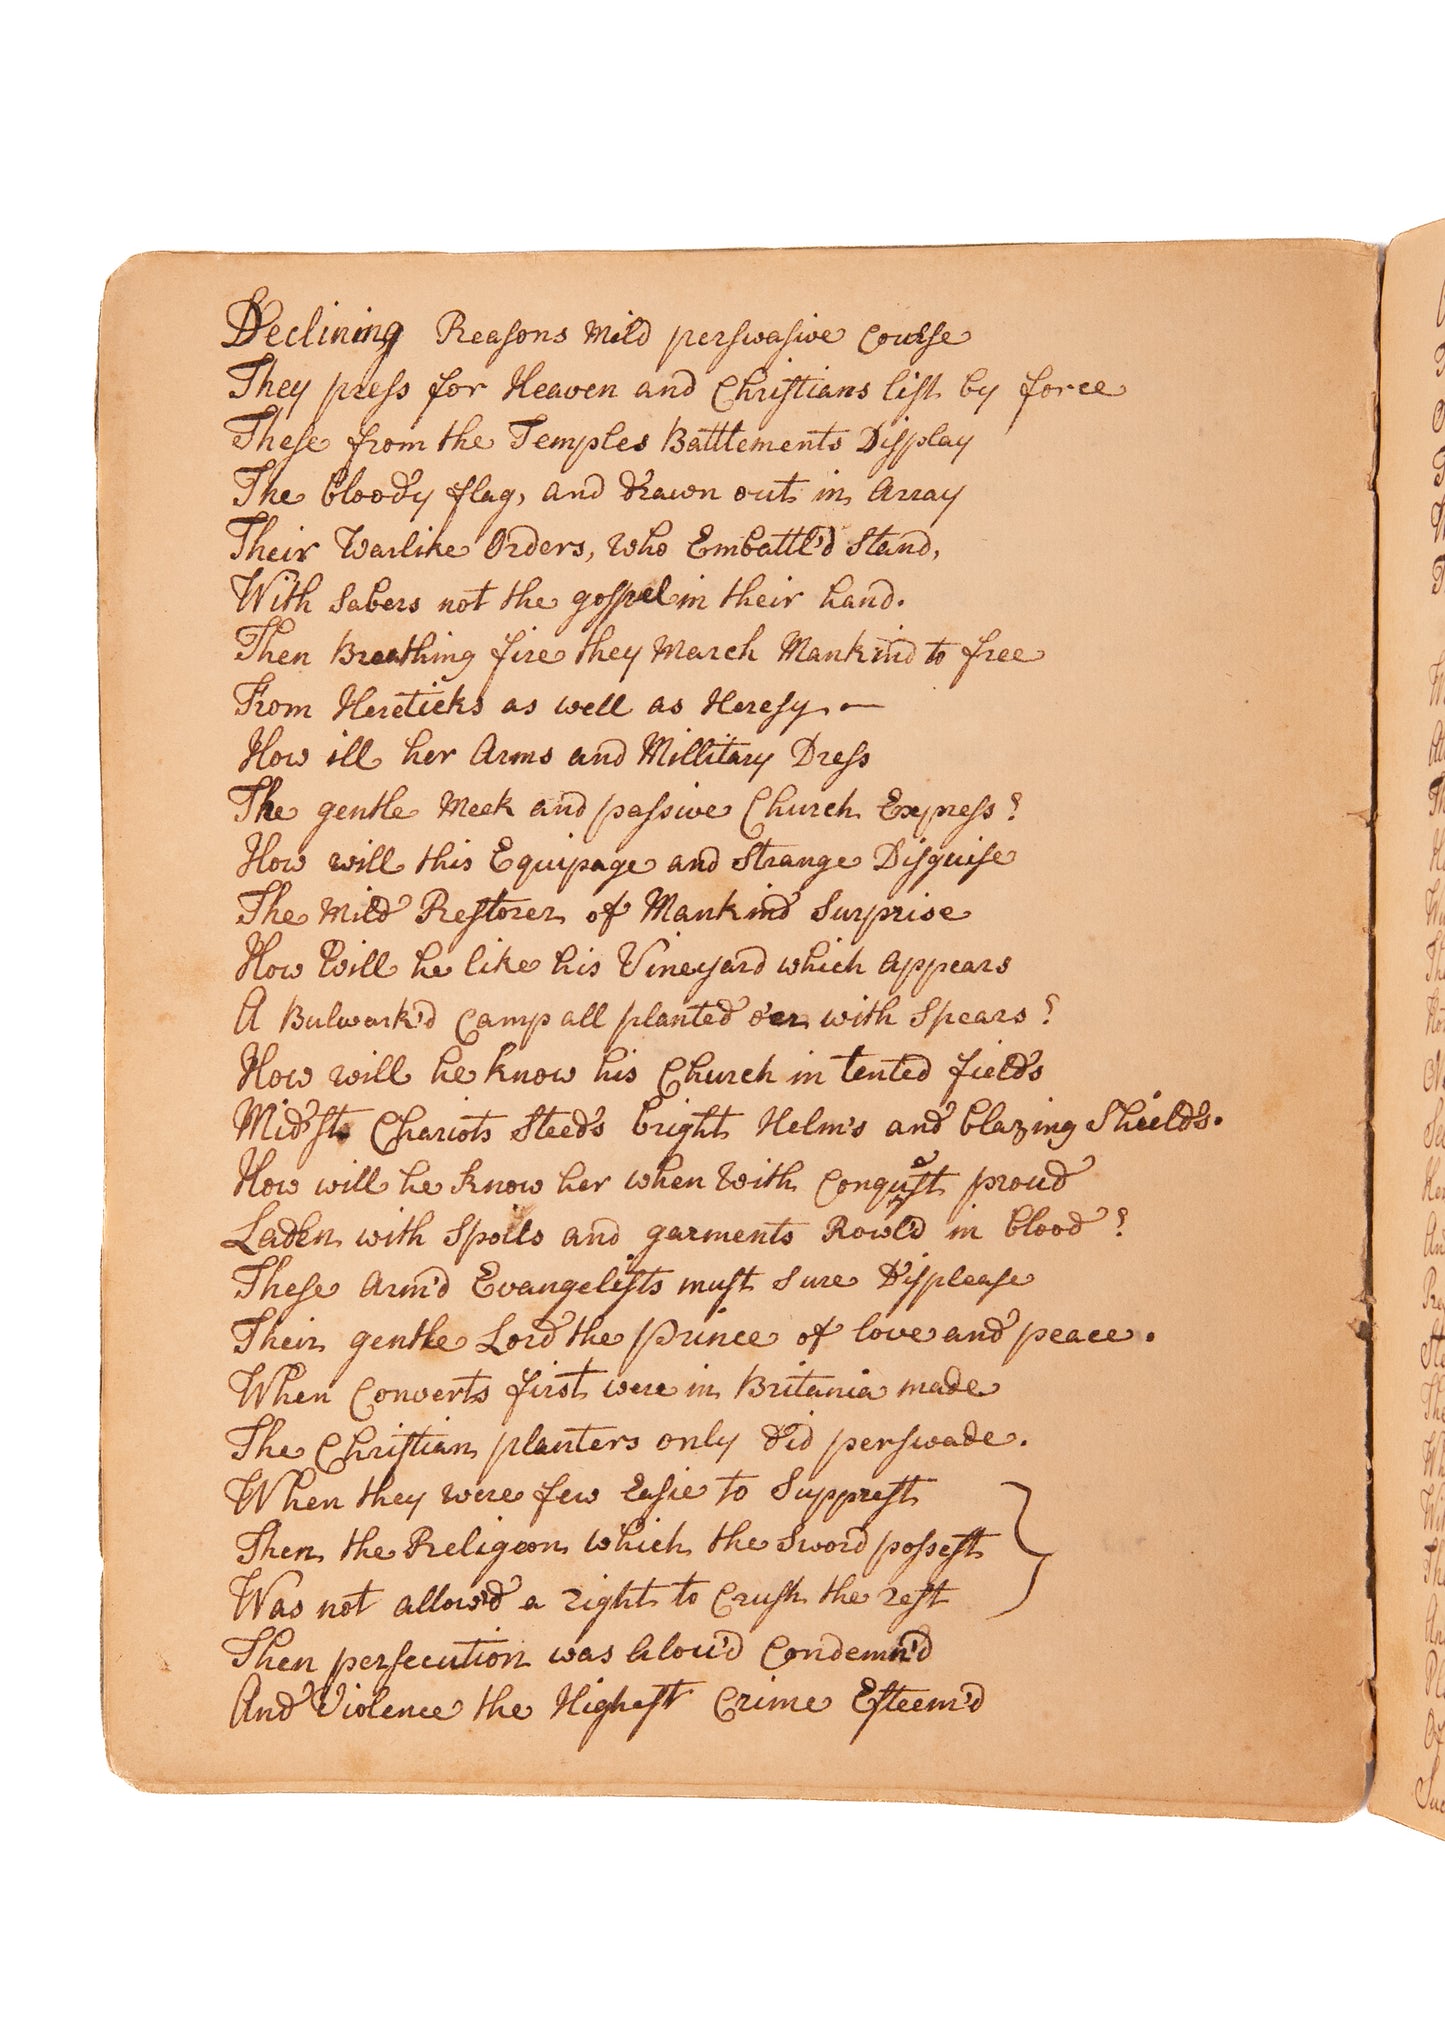 Declining Reasons Mild perswasive Course
They press for Heaven and Christians list by force
These from the Temples Battlements Display
The bloody flag, and drawn out in Array
Their Warlike Orders, who Embattl'd Stand,
With Sabers not the gospel in their hand.
Then Breathing fire they March Mankind to free
From Hereticks as well as Heresy. —
How ill her Arms and Millitary Dress
The gentle Meek and passive Church Express?
How will this Equipage and Strange Disguise
The Mild Restorer of Mankind Surprise
How Will he like his Vineyard which Appears
A Bulwark'd Camp all planted o'er with Spears?
How will he know his Church in tented fields
Mid'st Chariots Steeds bright Helm's and blazing Shields.
How will he know her when With Conquest proud
Laden with Spoils and garments Rowl'd in blood?
These Arm'd Evangelists must Sure Displease
Their gentle Lord the Prince of love and peace.
When Converts first were in Britania made
The Christian planters only did perswade.
When they were few Easie to Supprest
Then the Religion which the Sword possest
Was not allow'd a right to Crush the rest
Then persecution was alou'd Condemn'd
And Violence the Highest Crime Esteem'd